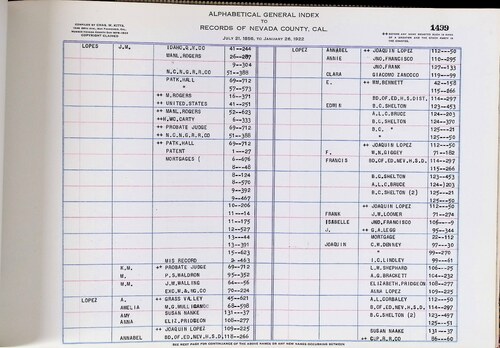 ALPHABETICAL GENERAL INDEX
TO
RECORDS OF NEVADA COUNTY, CAL.
JULY 21, 1856, TO JANUARY 28, 1922
1499
COMPILED BY CHAS. W. KITTS,
COPYRIGHT CLAIMED
LOPEZ J,M, IDAHO,G,M,CO 41--244
MANL,ROGERS 26--287
9--304
N,C,N,G,R,R,CO 51--388
PATK,HALL 69--712
" 57--573
++ M,ROGERS 16--371
++ UNITED,STATES 41--251
++ MANL,ROGERS 52--623
++M,WC,CARTY 6--333
++ PROBATE JUDGE 69--712
++ N,C,N,G,R,R,CO 51--388
++ PATK,HALL 69--712
PATENT 1--27
MORTGAGES ( 6--676
8--48
8--124
8--570
9--392
9--467
10--206
11--14
11--175
12--527
13--44
13--391
15--623
MIS RECORD 2--463
K,M, ++ PROBATE JUDGE 69--712
M, P,S,WALDRON 95--352
M,M, J,M,WALLING 64--56
EXC,W,&,HG,CO 70--224
LOPEZ A, ++ GRASS VALLEY 45--621
AMELIA M,G,MULLIGANO 68--598
AMY SUSAN NANKE 131--37
ANNA ELIZ,PRIDGEON 108--277
++ JOAQUIN LOPEZ 109--225
ANNABEL BD,OF,ED,NEV,H,S,D, 118--266
LOPEZ ANNABEL ++ JOAQUIN LOPEZ 112--50
ANNIE JNO,FRANCISCO 110--295
JNO,FRANK 127--133
CLARA GIACOMO ZANOCCO 119--99
E, ++ WM,BENNETT 42--158
115--866
BD,OF,ED,H,S,DIST, 114--297
EDWIN B,C,SHELTON 123--453
A,L,C,BRUCE 124--203
B,C,SHELTON 124--370
B,C, " 125--21
" 125--50
++ JOAQUIN LOPEZ 112--50
F, W,N,GIGGEY 71--182
FRANCIS BD,OF,ED,NEV,H,S,D, 114--297
115--266
B,C,SHELTON 123--453
A,L,C,BRUCE 124-)203
B,C,SHELTON (2) 125--21
125--50
JOAQUIN LOPEZ 112--50
FRANK J,M,LOONER 71--274
ISABELLE JNO,FRANCISCO 106--9
J, ++ G,A,LEGG 95--344
MORTGAGE 22--112
JOAQUIN C,W,DENNEY 97--30
99--270
I,C,LINDLEY 99--61
L,W,SHEPHARD 106--25
A,G,BRACKETT 114--232
ELIZABETH,PRIDGEON 108--277
ANNA LOPEZ 109--225
A,L,CORDALEY 112--56
BD,OF,ED,NEV,H,S,D, 114--297
B,G,SHELTON (2) 123--497
125--51
SUSAN NANKE 131--37
++ CUP,R,R,CO 86--60
SEE NEXT PAGE FOR CONTINUANCE OF THE ABOVE NAMES OR ANY NEW NAMES OCCURRING BETWEEN